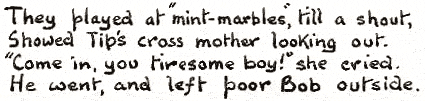 They played at "mint-marbles", till a shout,
Showed Tip's cross mother looking out.
"Come in, you tiresome boy!" she cried.
He went, and left poor Bob outside.